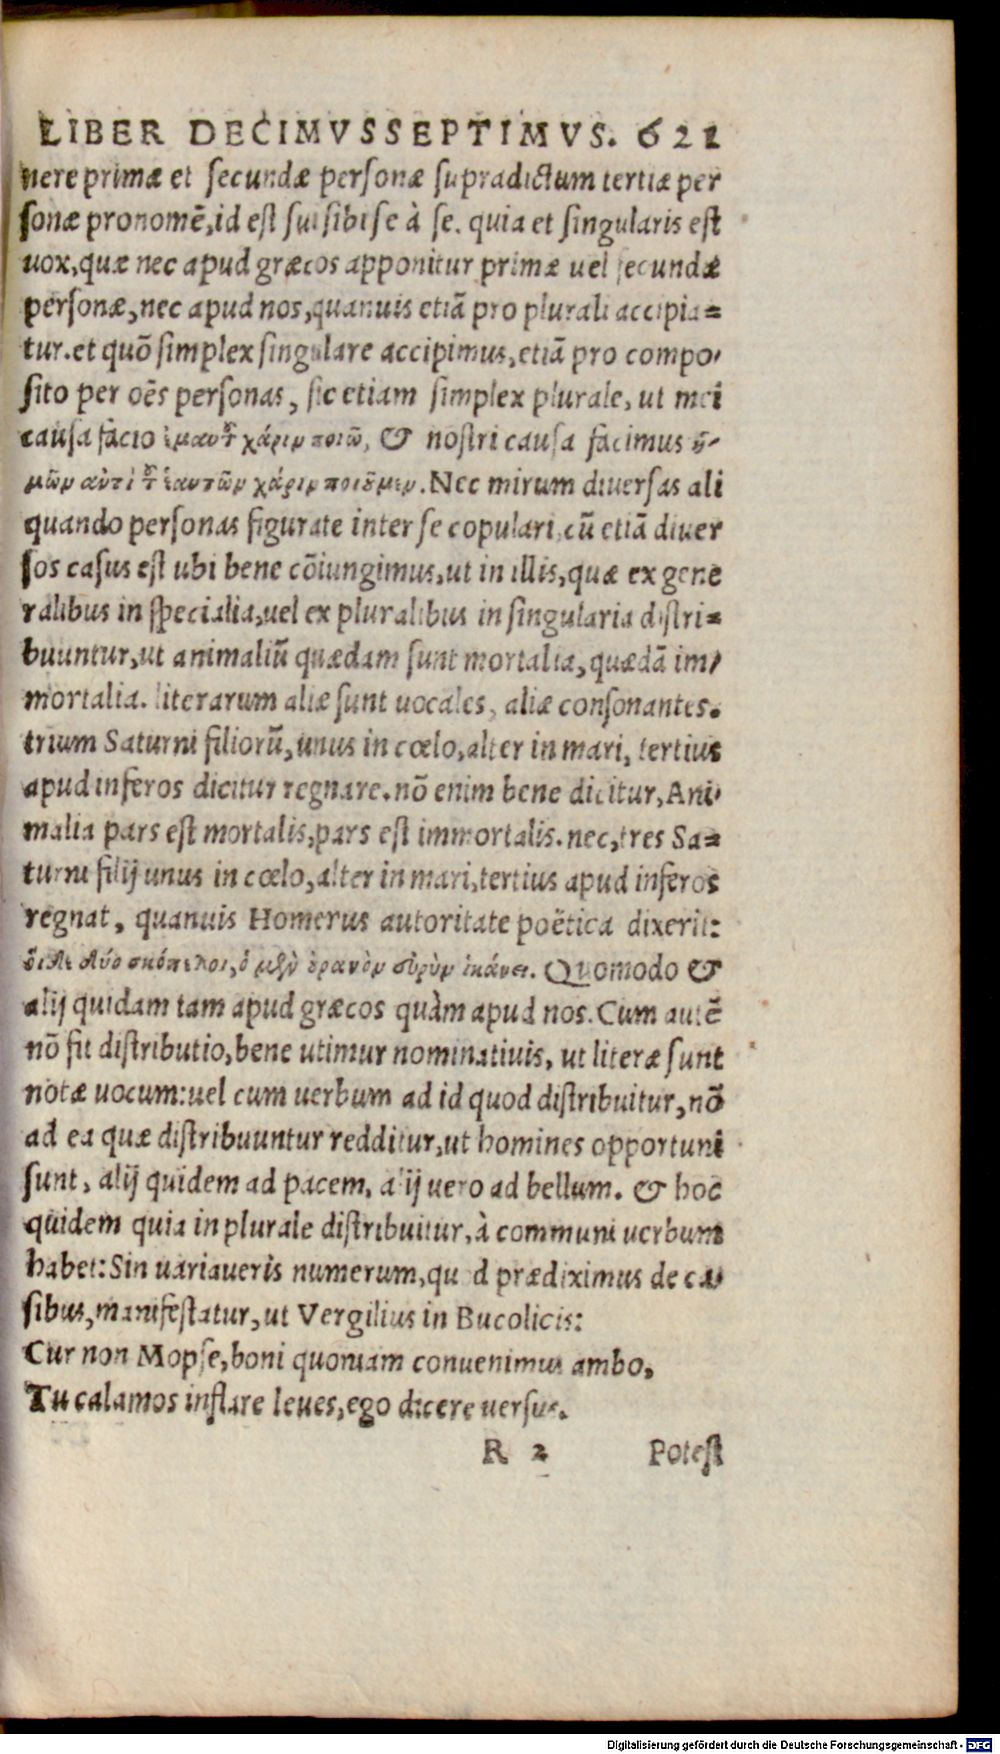 LIBER DECIMVSSEPTIMVS. 621
nere primæ et secundæ personæ supradictum tertiæ per
sonæ pronomē, id est sui sibi se à se. quia et singularis est
uox, quæ nec apud græcos apponitur primæ uel secundæ
personæ, nec apud nos, quanuis etiā pro plurali accipia=
tur. et quō simplex singulare accipimus, etiā pro compo-
sito per oēs personas, sic etiam simplex plurale, ut mei
causa facio χάριν ποιῶ, & nostri causa facimus
μῶν αὐτὶ ἑαυτῶν χάριν. Nec mirum diuersas ali
quando personas figurate inter se copulari, cū etiā diuer
sos casus est ubi bene cōiungimus, ut in illis, quæ ex gene
ralibus in specialia, uel ex pluralibus in singularia distri=
buuntur, ut animaliū quædam sunt mortalia, quædā im-
mortalia. literarum aliæ sunt uocales, aliæ consonantes.
trium Saturni filiorū, unus in cœlo, alter in mari, tertius
apud inferos dicitur regnare. nō enim bene dicitur, Ani-
malia pars est mortalis, pars est immortalis. nec, tres Sa=
turni filij unus in cœlo, alter in mari, tertius apud inferos
regnat, quanuis Homerus autoritate poëtica dixerit:
δύο σκόπελοι, ὁ ἱκάνει. Quomodo &
alij quidam tam apud græcos quàm apud nos. Cum autē
nō fit distributio, bene utimur nominatiuis, ut literæ sunt
notæ uocum: uel cum uerbum ad id quod distribuitur, nō
ad ea quæ distribuuntur redditur, ut homines opportuni
sunt, alij quidem ad pacem, alij uero ad bellum. & hoc
quidem quia in plurale distribuitur, à communi uerbum
habet: Sin uariaueris numerum, qu d prædiximus de ca-
sibus, manifestatur, ut Vergilius in Bucolicis:
Cur non Mopse, boni quoniam conuenimus ambo,
Tu calamos inflare leues, ego dicere uersus.
R 2 Potest
Digitalisierung gefördert durch die Deutsche Forschungsgemeinschaft - DFG